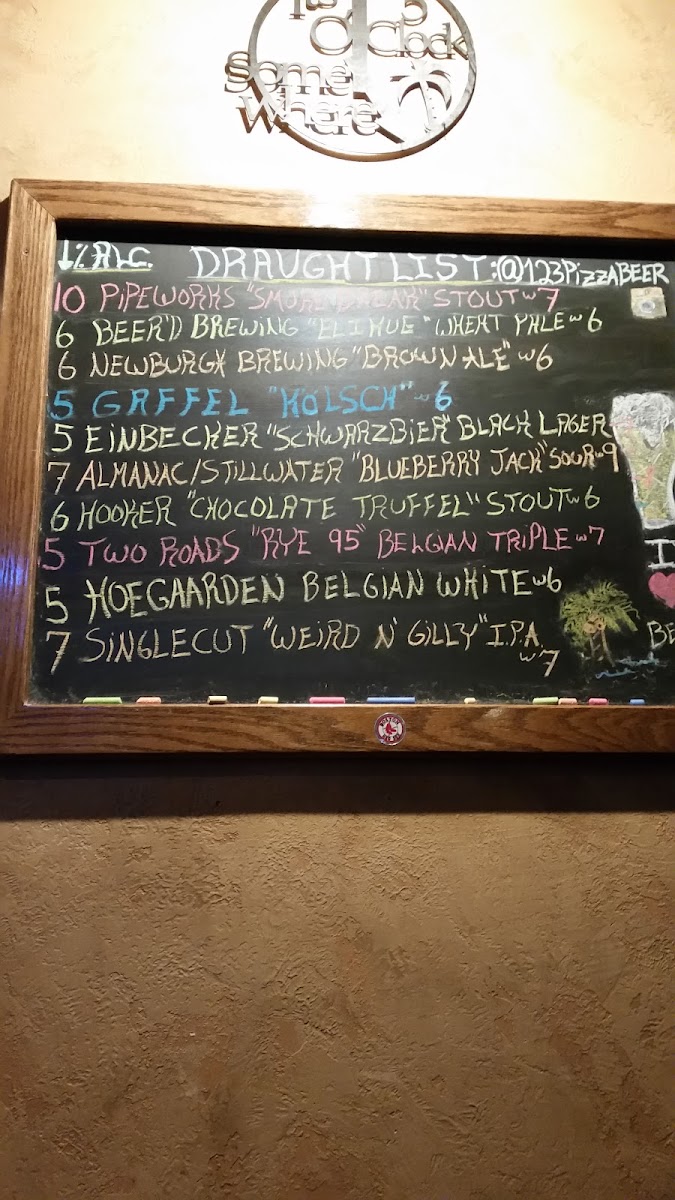 It's 5
O'Clock
some
where
↓% ALC. DRAUGHT LIST: @123PizzABEER
10 PiPEWORKS "SMORE BREAK" STOUT ~ 7
6 BEER'D BREWING "ELIHUE" WHEAT PALE ~ 6
6 NEWBURGH BREWING "BROWN ALE" ~ 6
5 GAFFEL "KOLSCH" ~ 6
5 EiNBECKER "SCHWARZBiER" BLACK LAGER
7 ALMANAC/STILLWATER "BLUEBERRY JACK" SOUR ~ 9
6 HOOKER "CHOCOLATE TRUFFEL" STOUT ~ 6
5 TWO ROADS "RYE 95" BELGIAN TRiPLE ~ 7
5 HOEGAARDEN BELGIAN WHITE ~ 6
7 SiNGLECUT "WEiRD N' GiLLY" I.P.A. ~ 7
I
BE